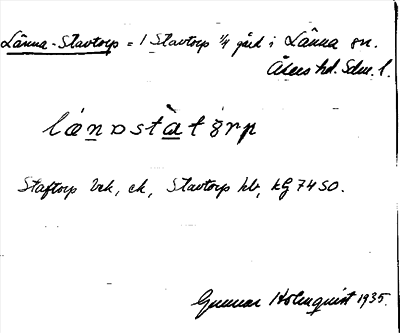 Länna-Stavtorp = 1 Stavtorp 1/4 gård i Länna sn.
Åkers hd. Sdm. l.
Staftorp hvk, ek, Stavtorp hb, kG 74 SO.
Gunnar Holmquist 1935.